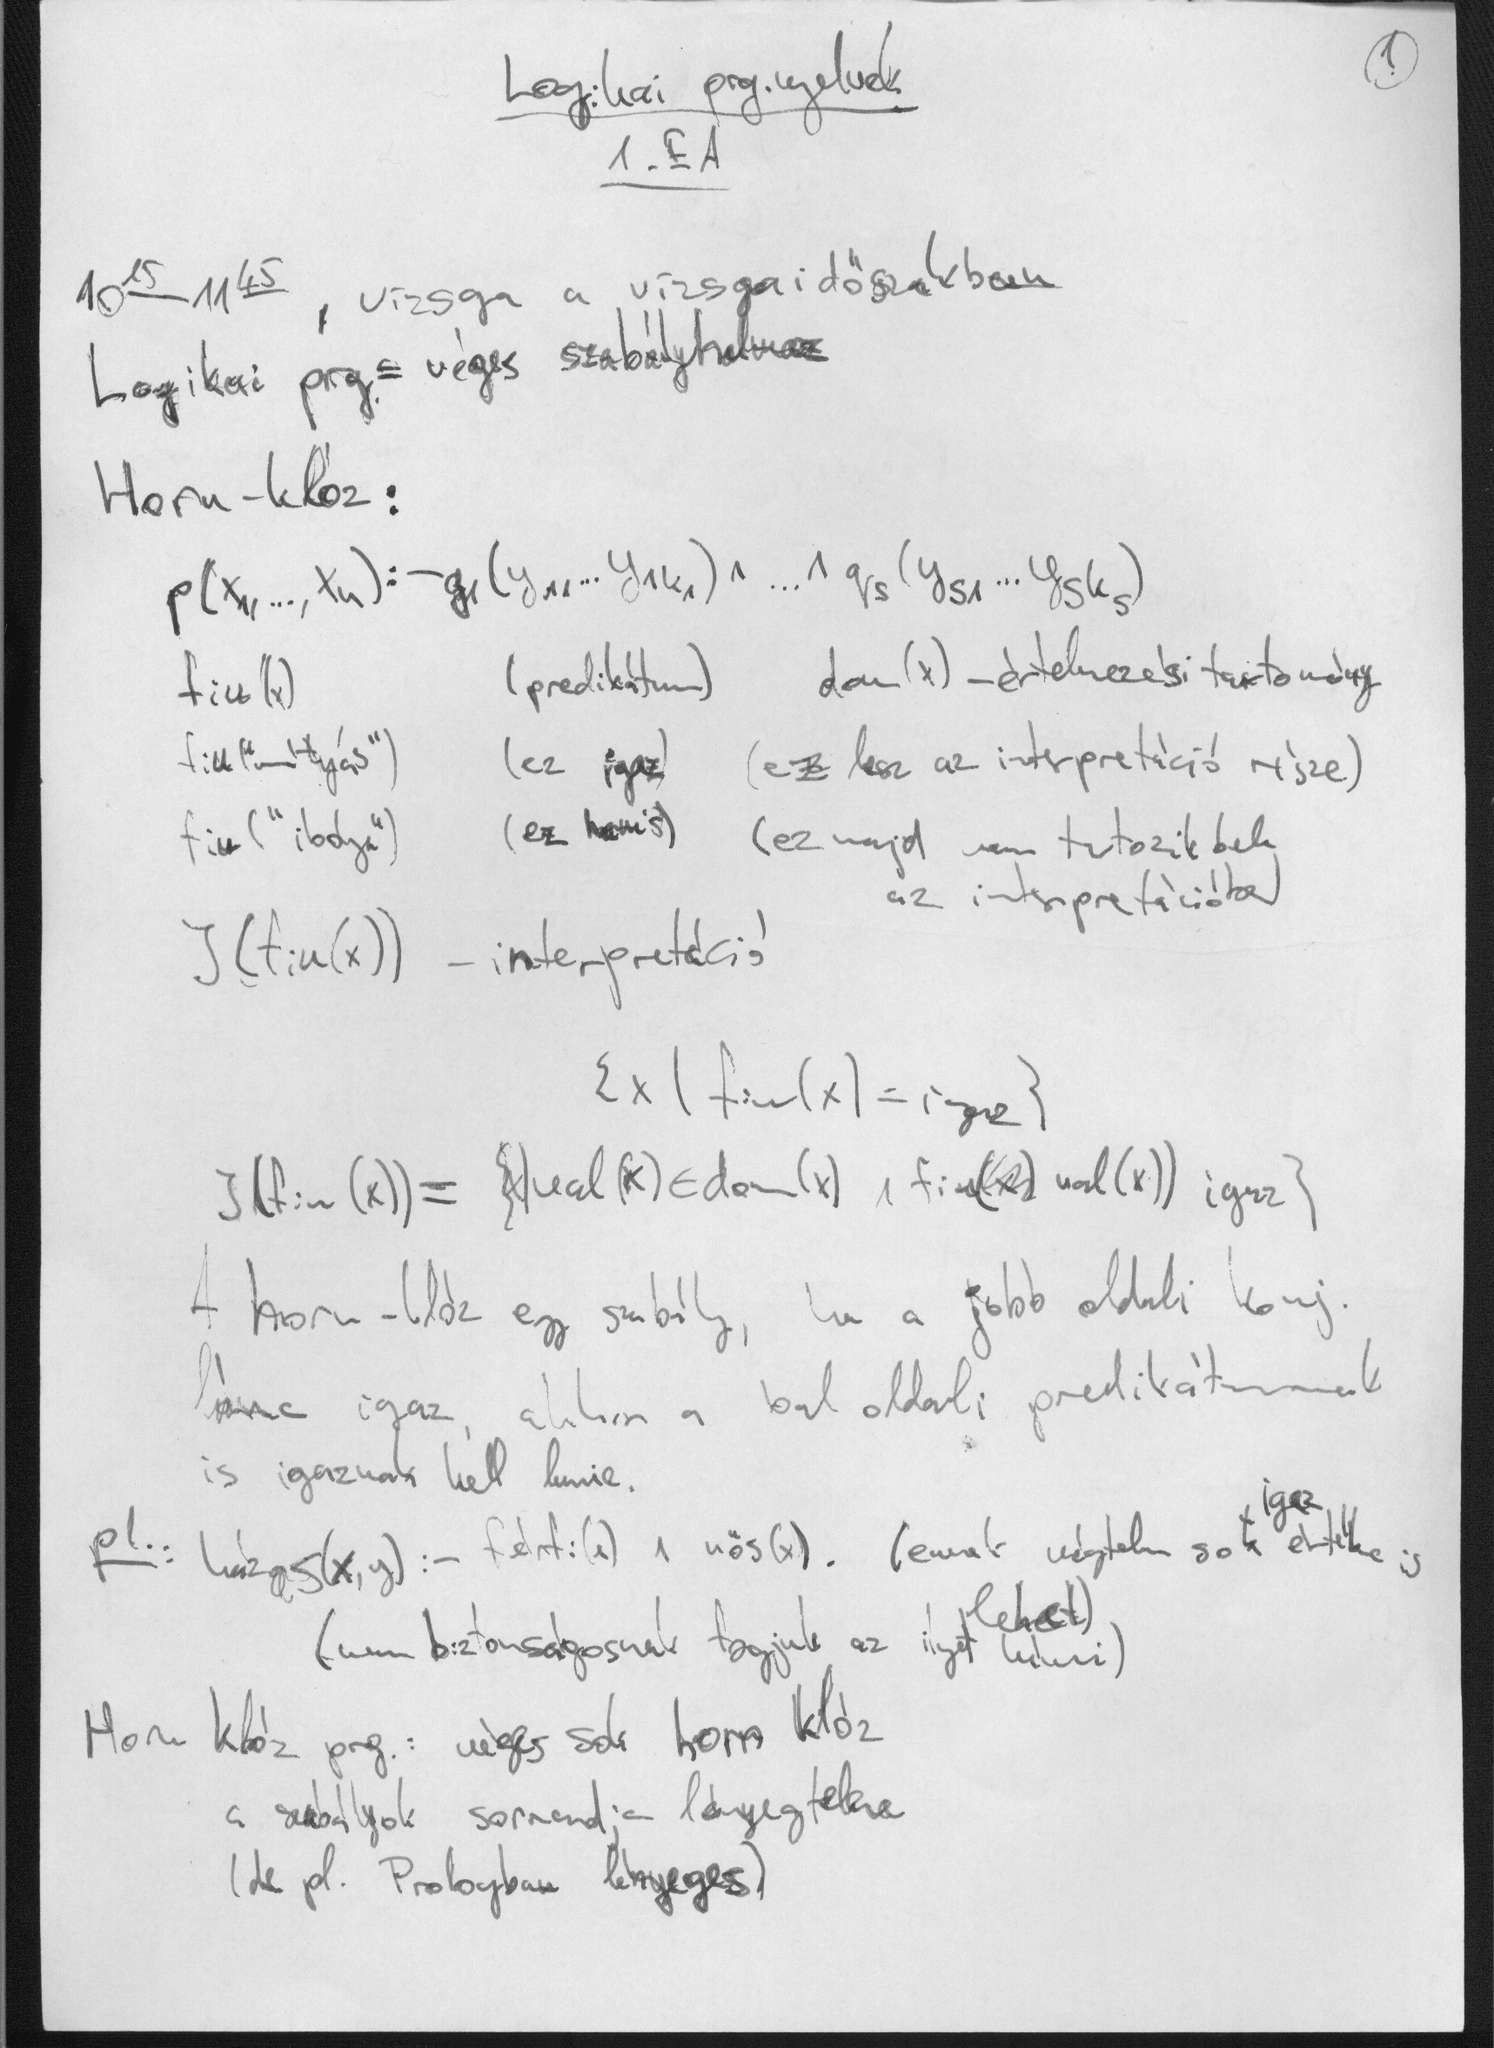 1
Logikai prg.nyelvek
1. EA
10 15 – 11 45, vizsga a vizsgaidőszakban
Logikai prg. = véges szabályhalmaz
Horn-klóz:
p(x1, ..., xn) :- q1(y11 ... y1k1) ∧ ... ∧ qs(ys1 ... ysks)
fiu(x) (predikátum) dom(x) – értelmezési tartomány
fiu("mátyás") (ez igaz) (ez lesz az interpretáció része)
fiu("ibolya") (ez hamis) (ez majd nem tartozik bele
az interpretációba)
I(fiu(x)) – interpretáció
{x | fiu(x) = igaz}
I(fiu(x)) = {x | val(x) ∈ dom(x) ∧ fiu(val(x)) igaz}
A horn-klóz egy szabály, ha a jobb oldali konj.
lánc igaz, akkor a bal oldali predikátumnak
is igaznak kell lennie.
pl.: házas(x,y) :- férfi(x) ∧ nős(x). (ennek végtelen sok igaz értéke is
lehet)
(nem biztonságosnak fogjuk az ilyet hívni)
Horn klóz prg.: véges sok horn klóz
a szabályok sorrendje lényegtelen
(de pl. Prologban lényeges)